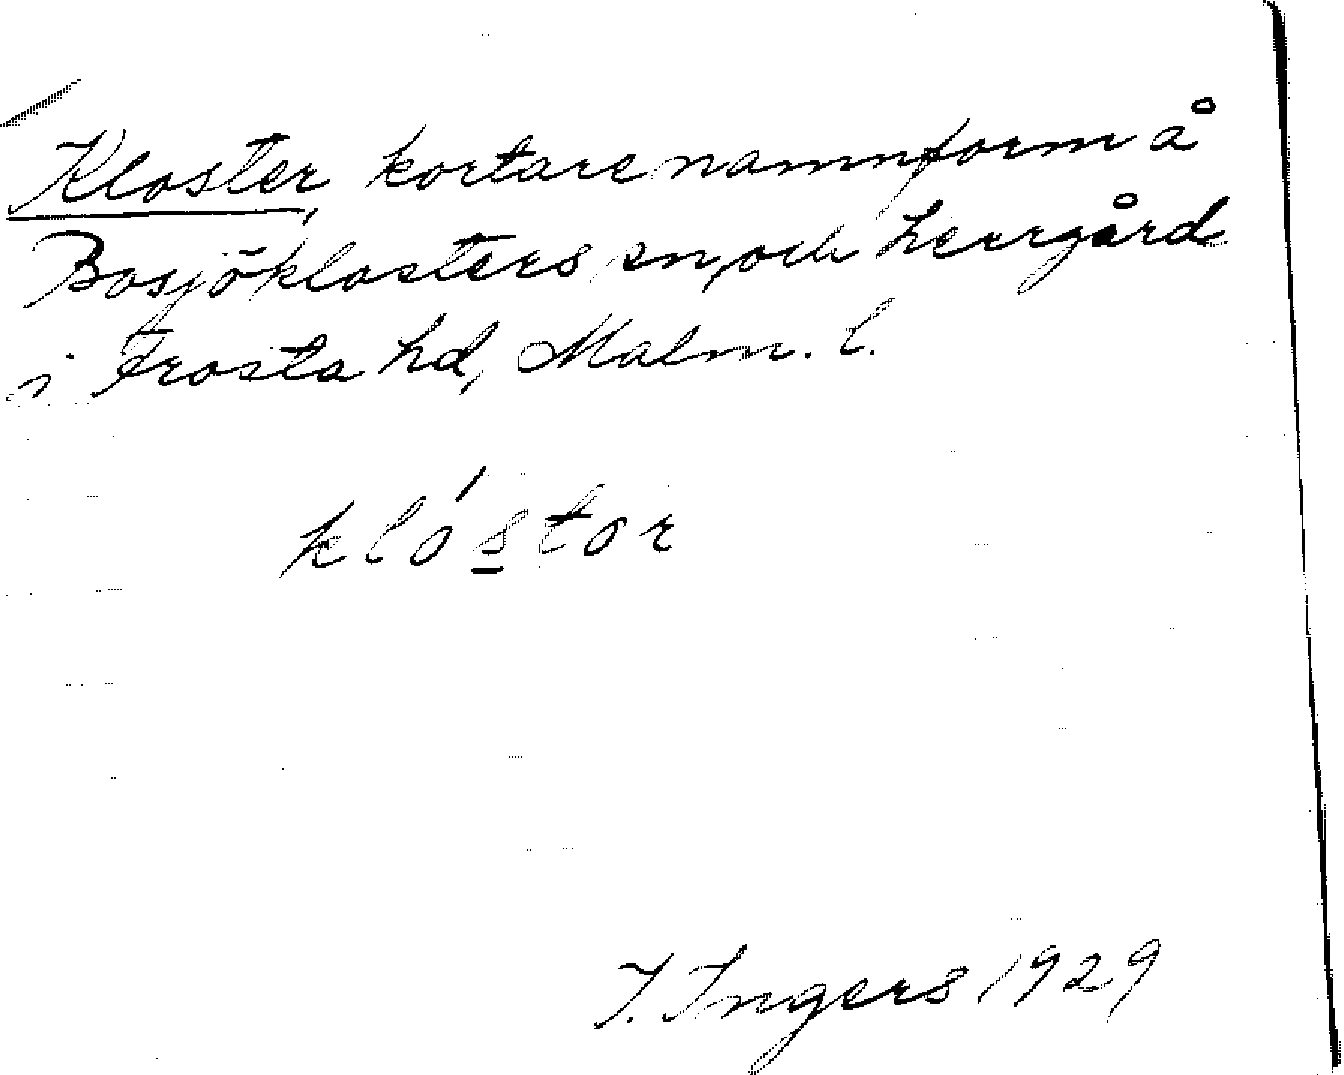 Kloster, kortare namnform å
Bosjöklosters sn, och herrgård
i Frosta hd, Malm. l.
klóstor
I. Ingers 1929